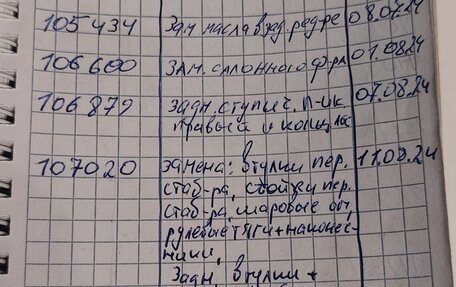 105434 Зам масла в зад. ред-ре 08.07.24
106600 ЗАМ. САЛОННОГО ф-ра 01.08.24
106879 Задн. ступич. п-ик 07.08.24
правый и кольца
107020 замена: втулки пер. 11.08.24
стаб-ра, стойки пер.
стаб-ра, шаровые оп,
рулевые тяги + наконеч-
ники,
Задн. втулки +